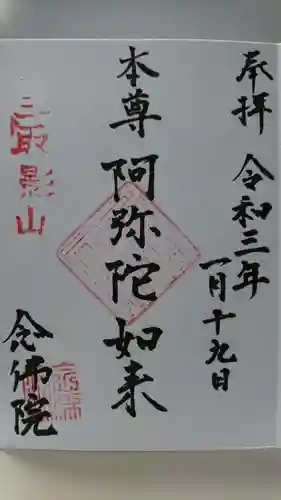 奉拝
令和三年
一月十九日
本尊
阿弥陀如来
影山
念佛院